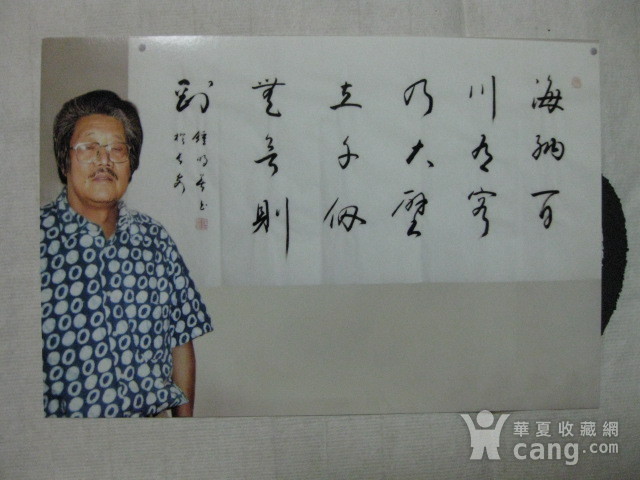 海納百
川有容
乃大壁
立千仞
無欲則
剛
鍾明善書
於長安
華夏收藏網
cang.com